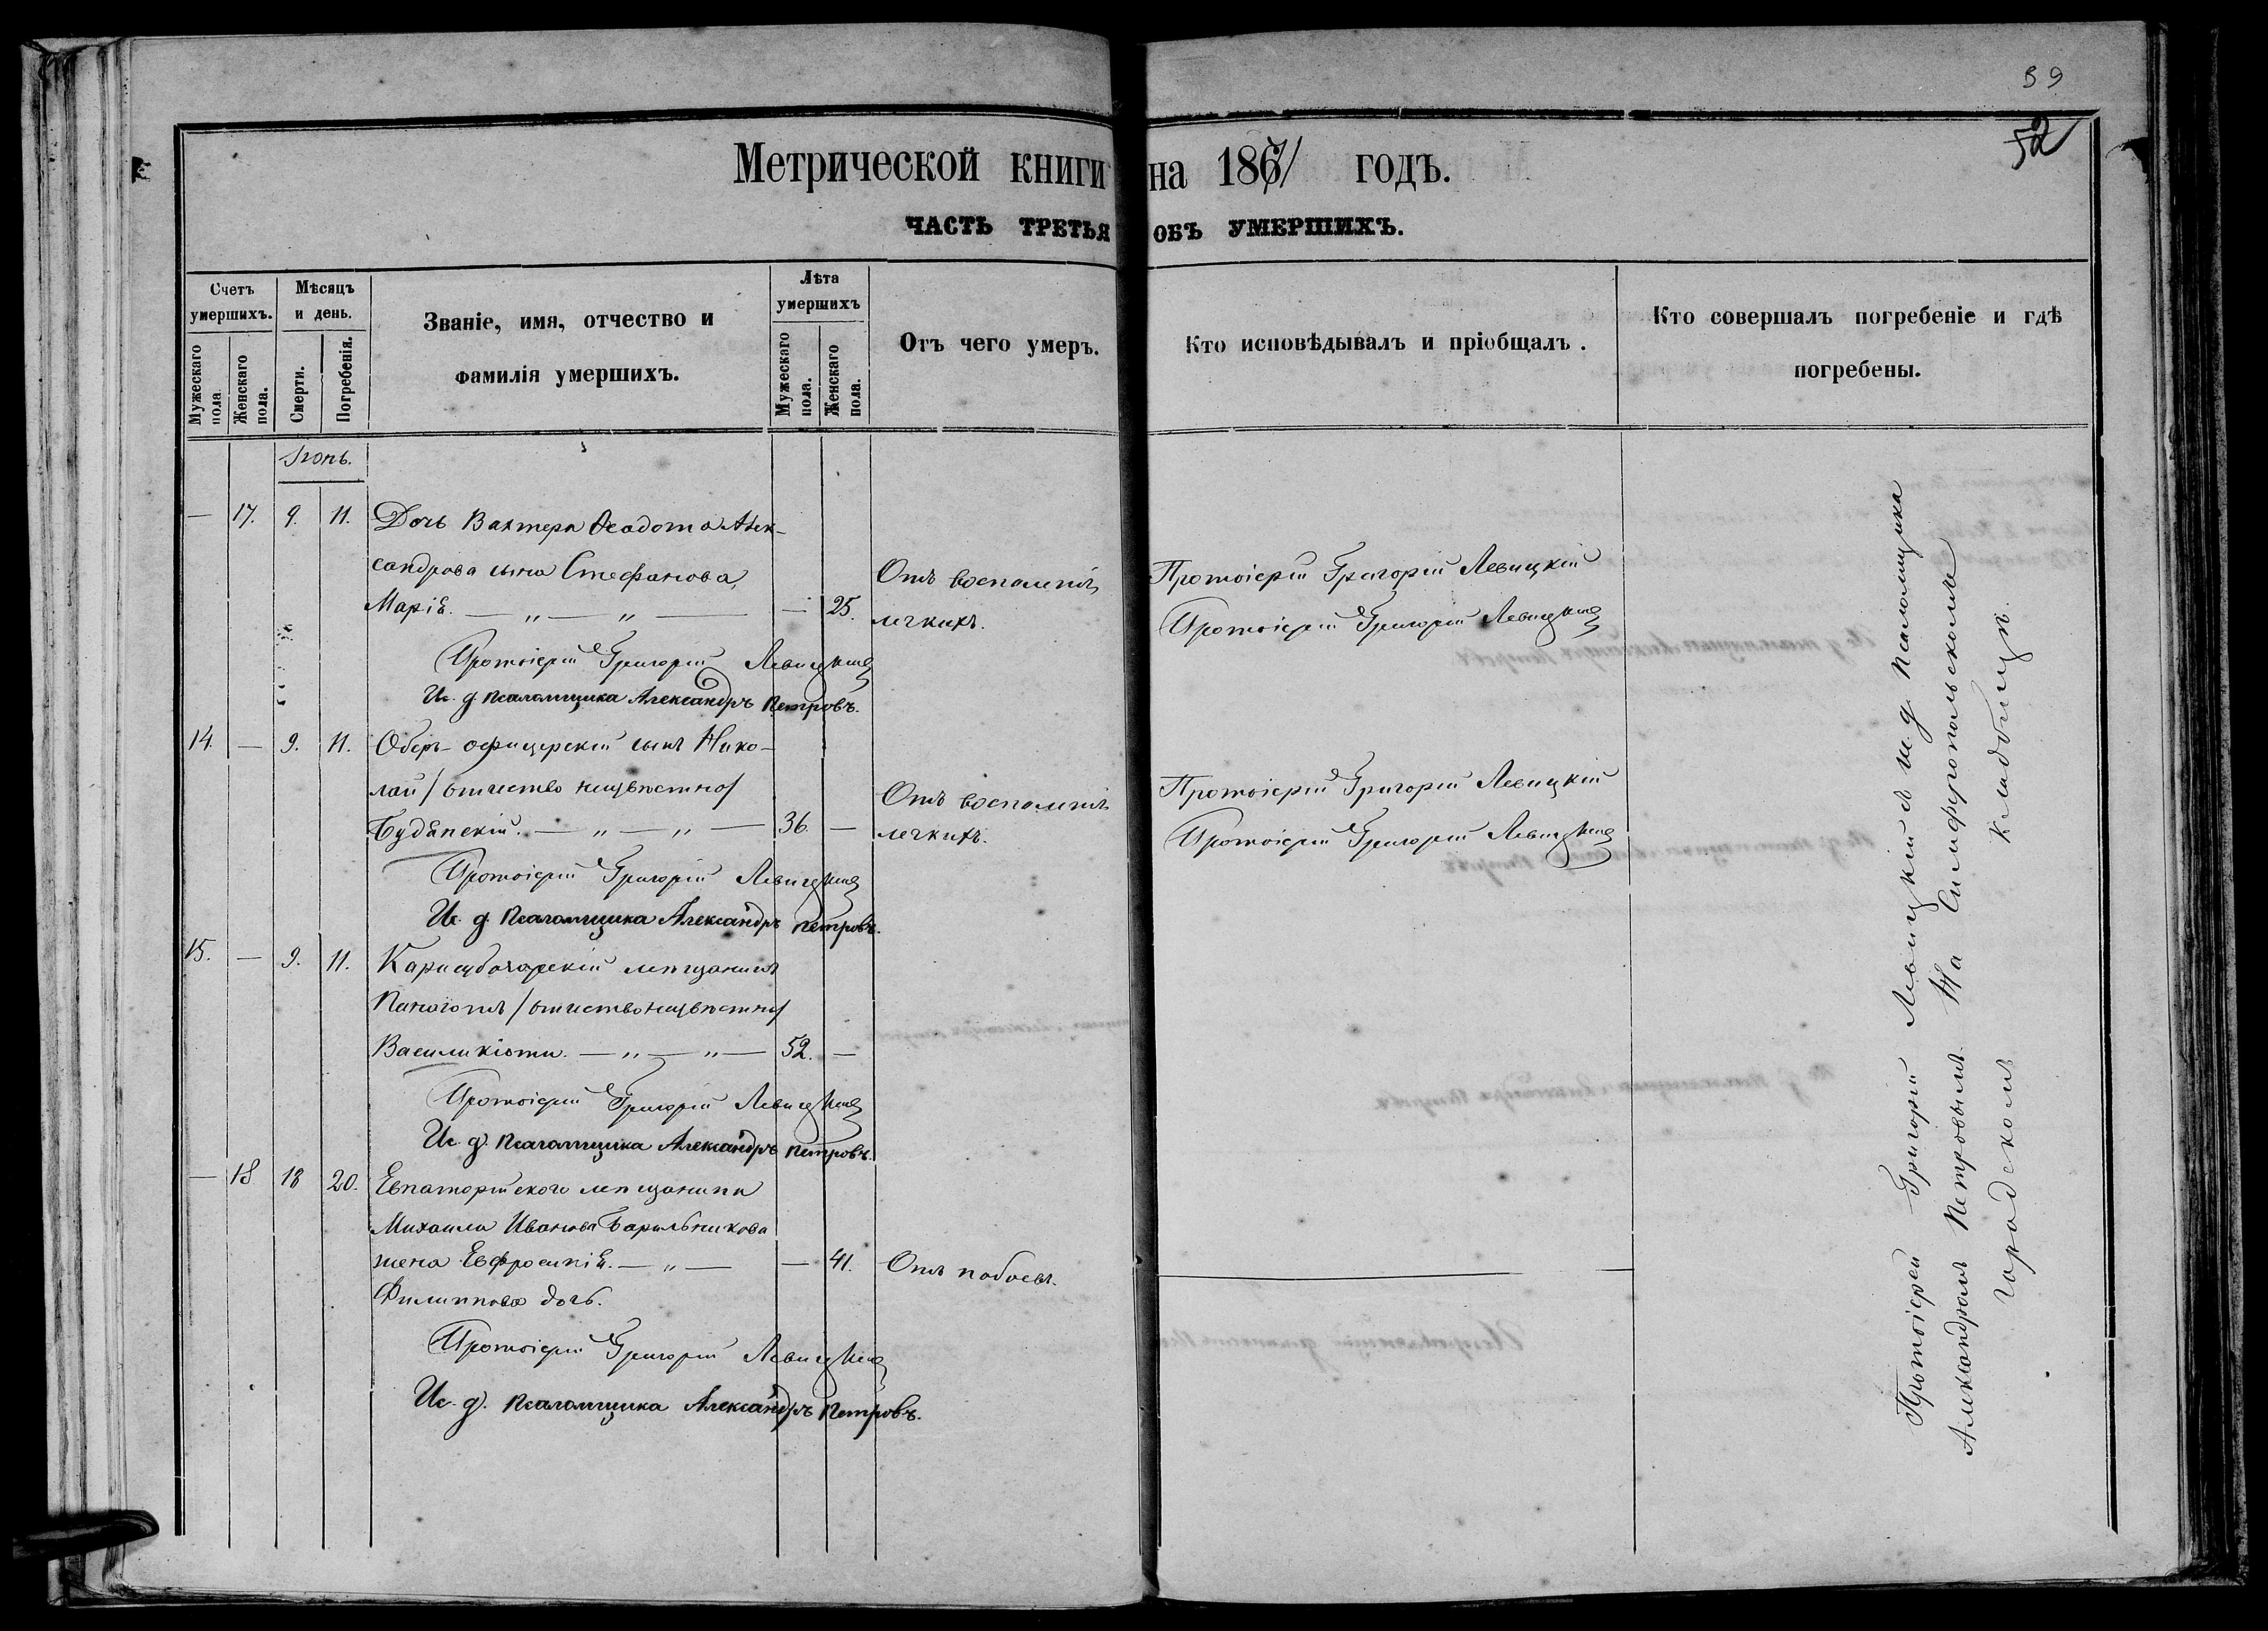 39
52
Метрической книги на 1871 годъ.
ЧАСТЬ ТРЕТЬЯ ОБЪ УМЕРШИХЪ.
Счетъ умершихъ.
Мужескаго пола
Женскаго пола.
Мѣсяцъ и день.
Смерти.
Погребенія.
Званіе, имя, отчество и
фамилія умершихъ.
Лѣта умершихъ
Мужескаго пола.
Женскаго пола.
Отъ чего умеръ.
Кто исповѣдывалъ и пріобщалъ.
Кто совершалъ погребеніе и гдѣ
погребены.
Іюнь.
— 17. 9. 11. Дочь Вахтера Ѳеодота Алек-
сандрова сына Стефанова, Отъ воспаленія Протоіерей Григорій Левицкій
Марія. — „ — „ — — 25. легкихъ. Протоіерей Григорій Левицкій
Протоіерей Григорій Левицкій
Ис. д. псаломщика Александръ Петровъ.
14. — 9. 11. Оберъ-офицерскій сынъ Нико-
лай /отчество неизвѣстно/ Отъ воспаленія Протоіерей Григорій Левицкій
Будянскій. — „ — „ — 36. — легкихъ. Протоіерей Григорій Левицкій
Протоіерей Григорій Левицкій
Ис. д. псаломщика Александръ Петровъ.
15. — 9. 11. Карасубазарскій мѣщанинъ
Панаіотъ /отчество неизвѣстно/
Василикіоти. — „ — „ — 52. —
Протоіерей Григорій Левицкій
Ис. д. псаломщика Александръ Петровъ.
— 18 18 20. Евпаторійскаго мѣщанина
Михаила Иванова Барильникова
жена Евфросинія. — „ — — 41. Отъ побоевъ.
Филиппова дочь.
Протоіерей Григорій Левицкій
Ис. д. псаломщика Александръ Петровъ.
Протоіерей Григорій Левицкій и и. д. псаломщика
Александромъ Петровымъ. На Симферопольскомъ
городскомъ кладбищѣ.